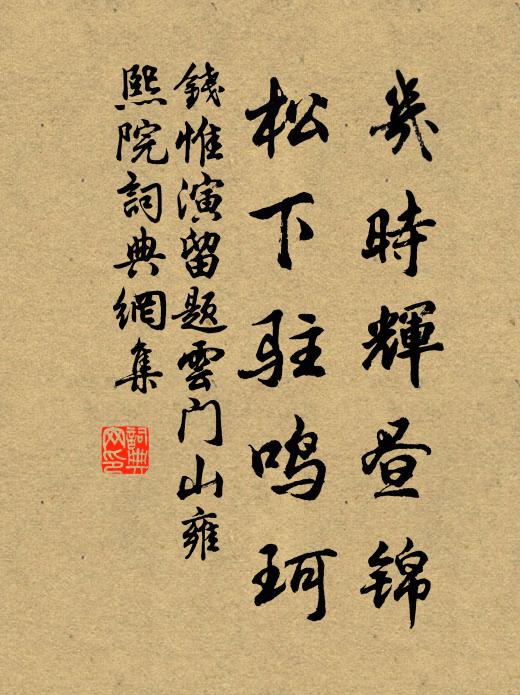 幾時輝昼錦
松下駐鳴珂
錢惟演留題雲門山雍
熙院詞典網集
詞典
网印